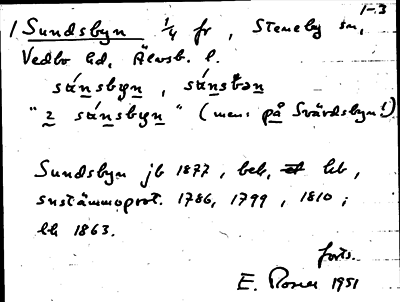 1-3
1 Sundsbyn 1/4 fr, Steneby sn,
Vedbo hd. Älvsb. l.
sánsbyn, sánstən
"z sánsbyn" (men: på Svärdsbyn!)
Sundsbyn jb 1877, beb, et hb,
snstämmoprot. 1786, 1799, 1810;
hh 1863.
forts.
E. Rosell 1951